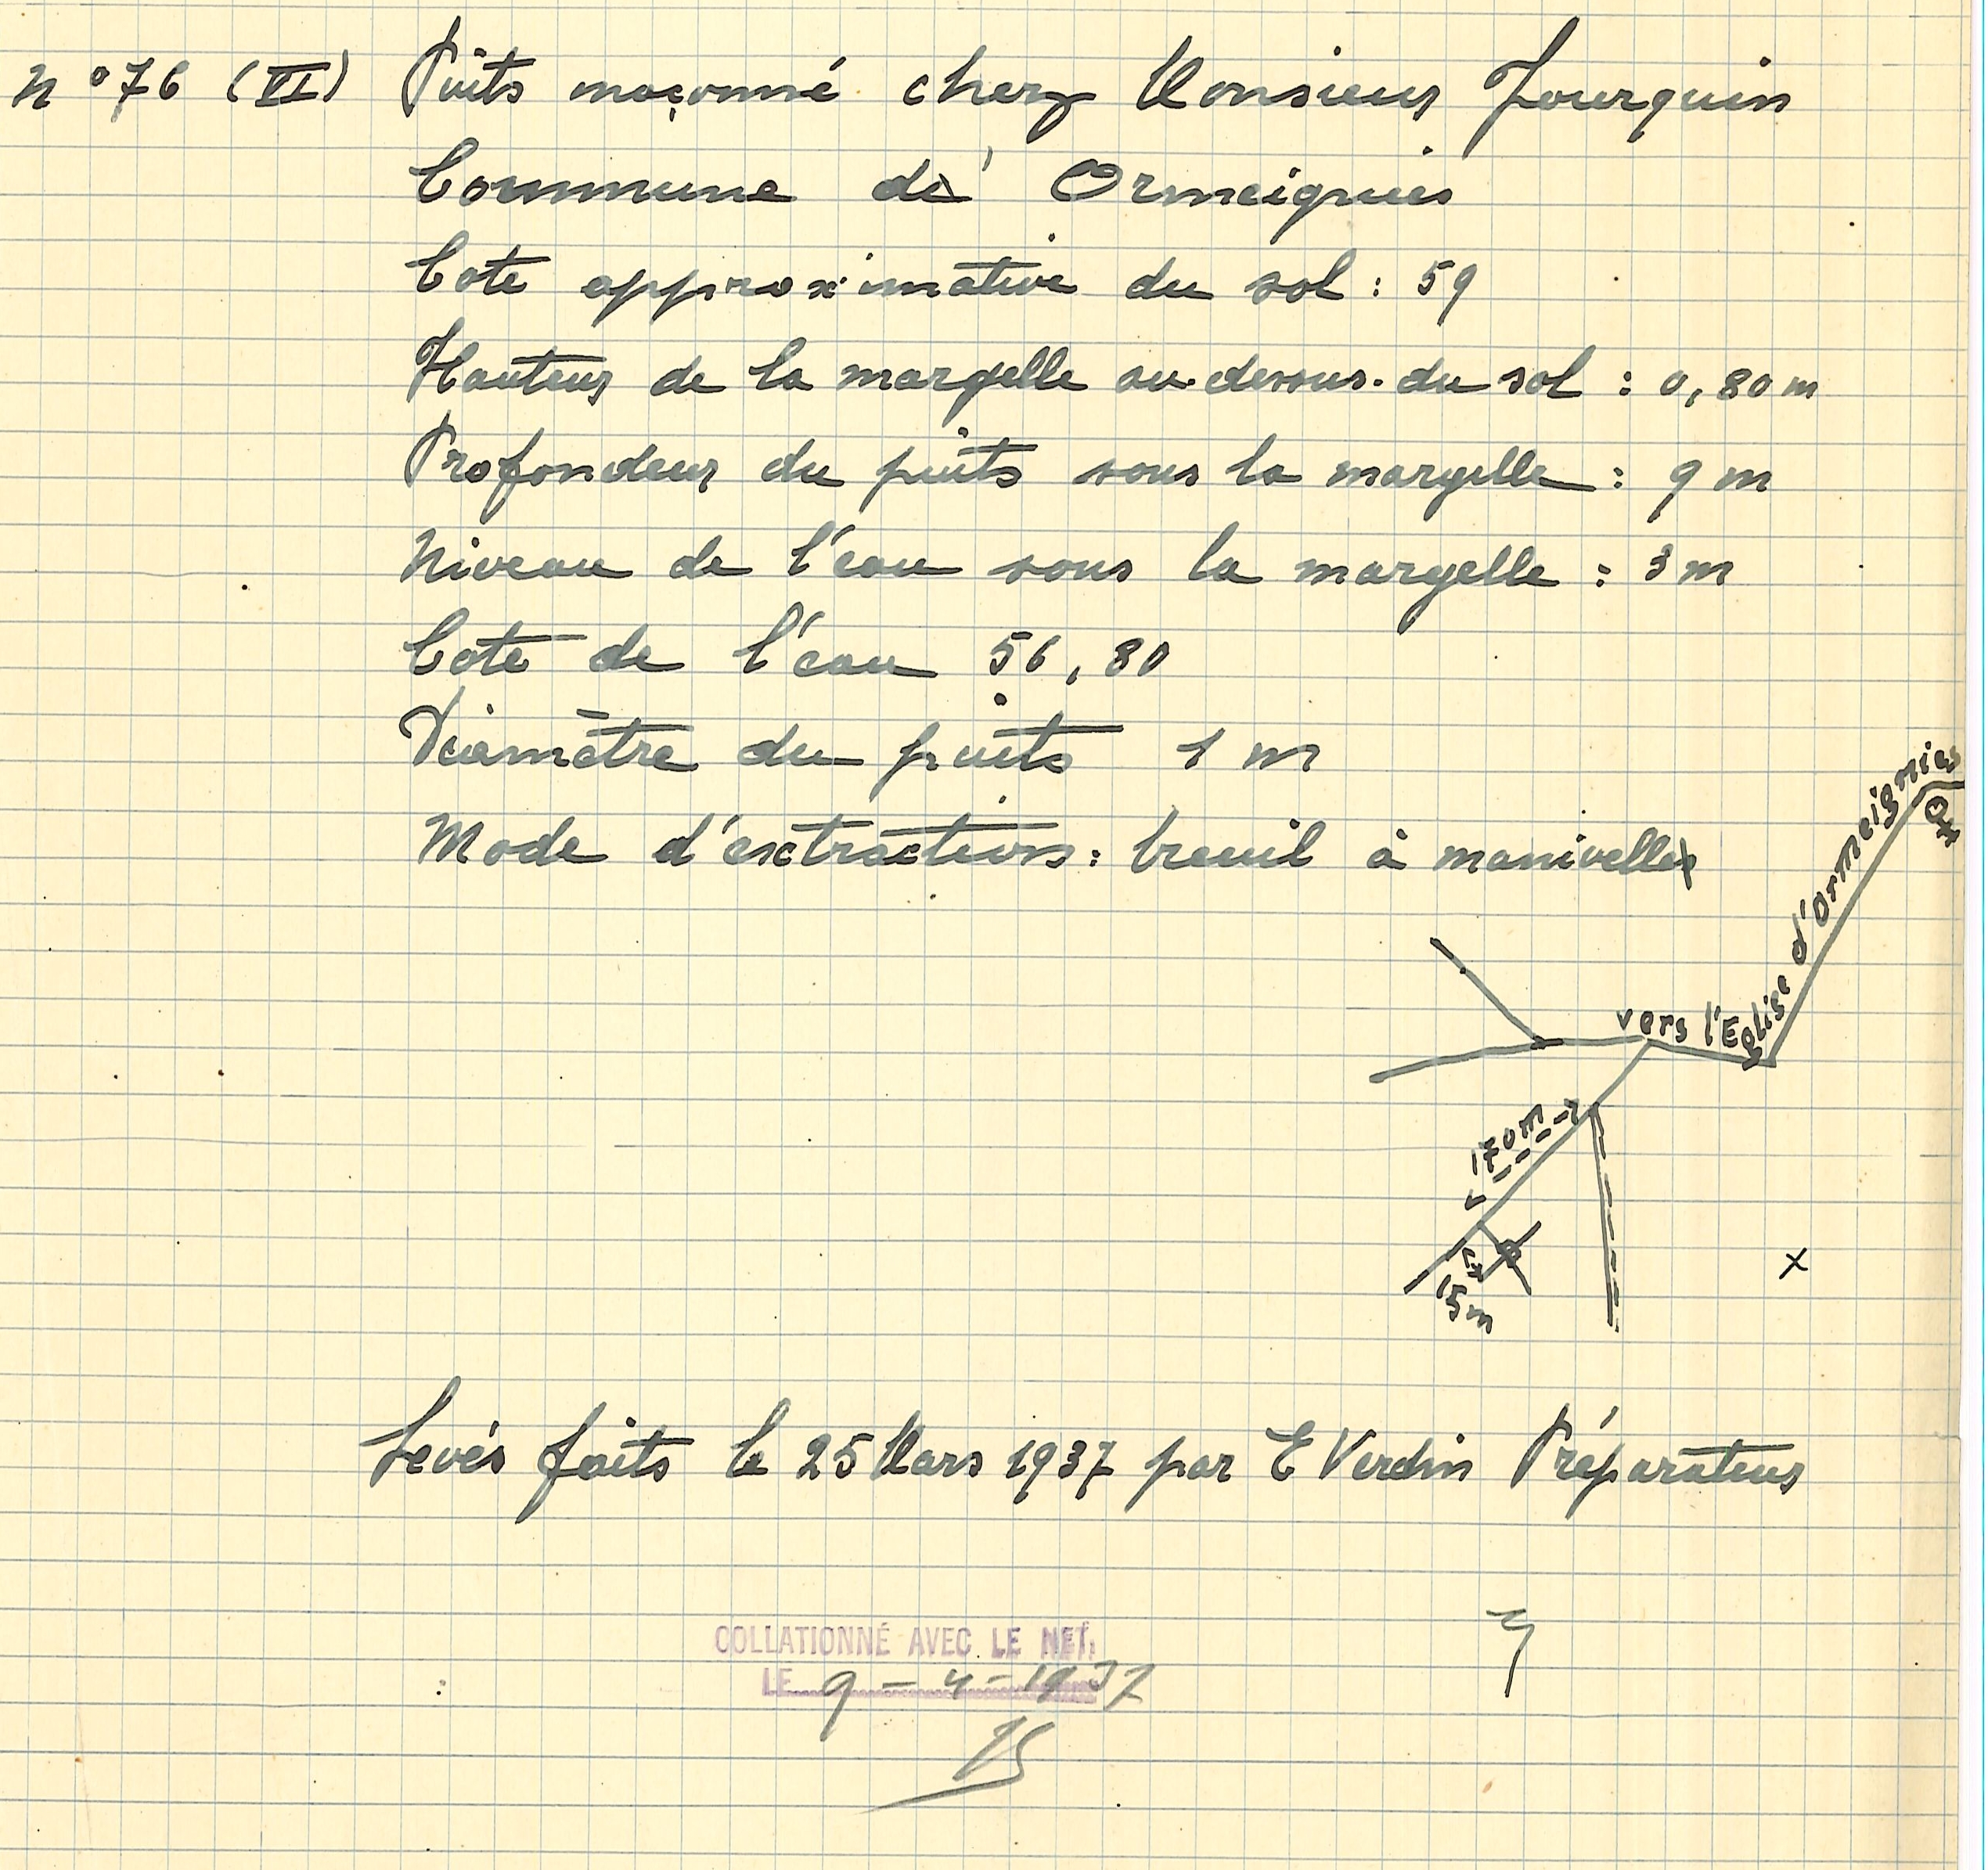 N° 76 (VI) Puits maçonné chez Monsieur Jourquin
Commune d' Ormeignies
Cote approximative du sol : 59
Hauteur de la margelle au-dessus-du sol : 0,80 m
Profondeur du puits sous la margelle : 9 m
Niveau de l'eau sous la margelle : 3 m
Cote de l'eau 56,80
Diamètre du puits 1 m
Mode d'extraction : treuil à manivelle
vers l'Eglise d'Ormeignies
170m
15m
x
Levés faits le 25 Mars 1937 par E Verdin Préparateur
COLLATIONNÉ AVEC LE NET.
LE 9 - 4 - 1937